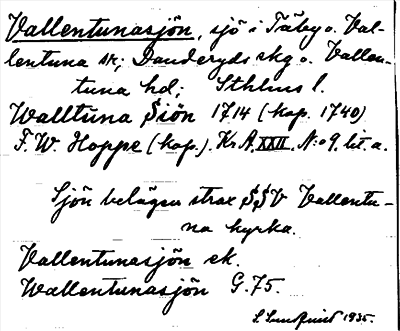 Vallentunasjön, sjö i Täby o. Val-
lentuna sk; Danderyds skg o. Vallen-
tuna hd; Sthlms l.
Walltuna Siön 1714 (kop. 1740)
F. W. Hoppe (kop.). Kr A. XXII. N:o 9 lit. a.
Sjön belägen strax SSV Vallentu-
na kyrka.
Vallentunasjön ek.
Wallentunasjön G. 75.
S Lundqvist 1935.